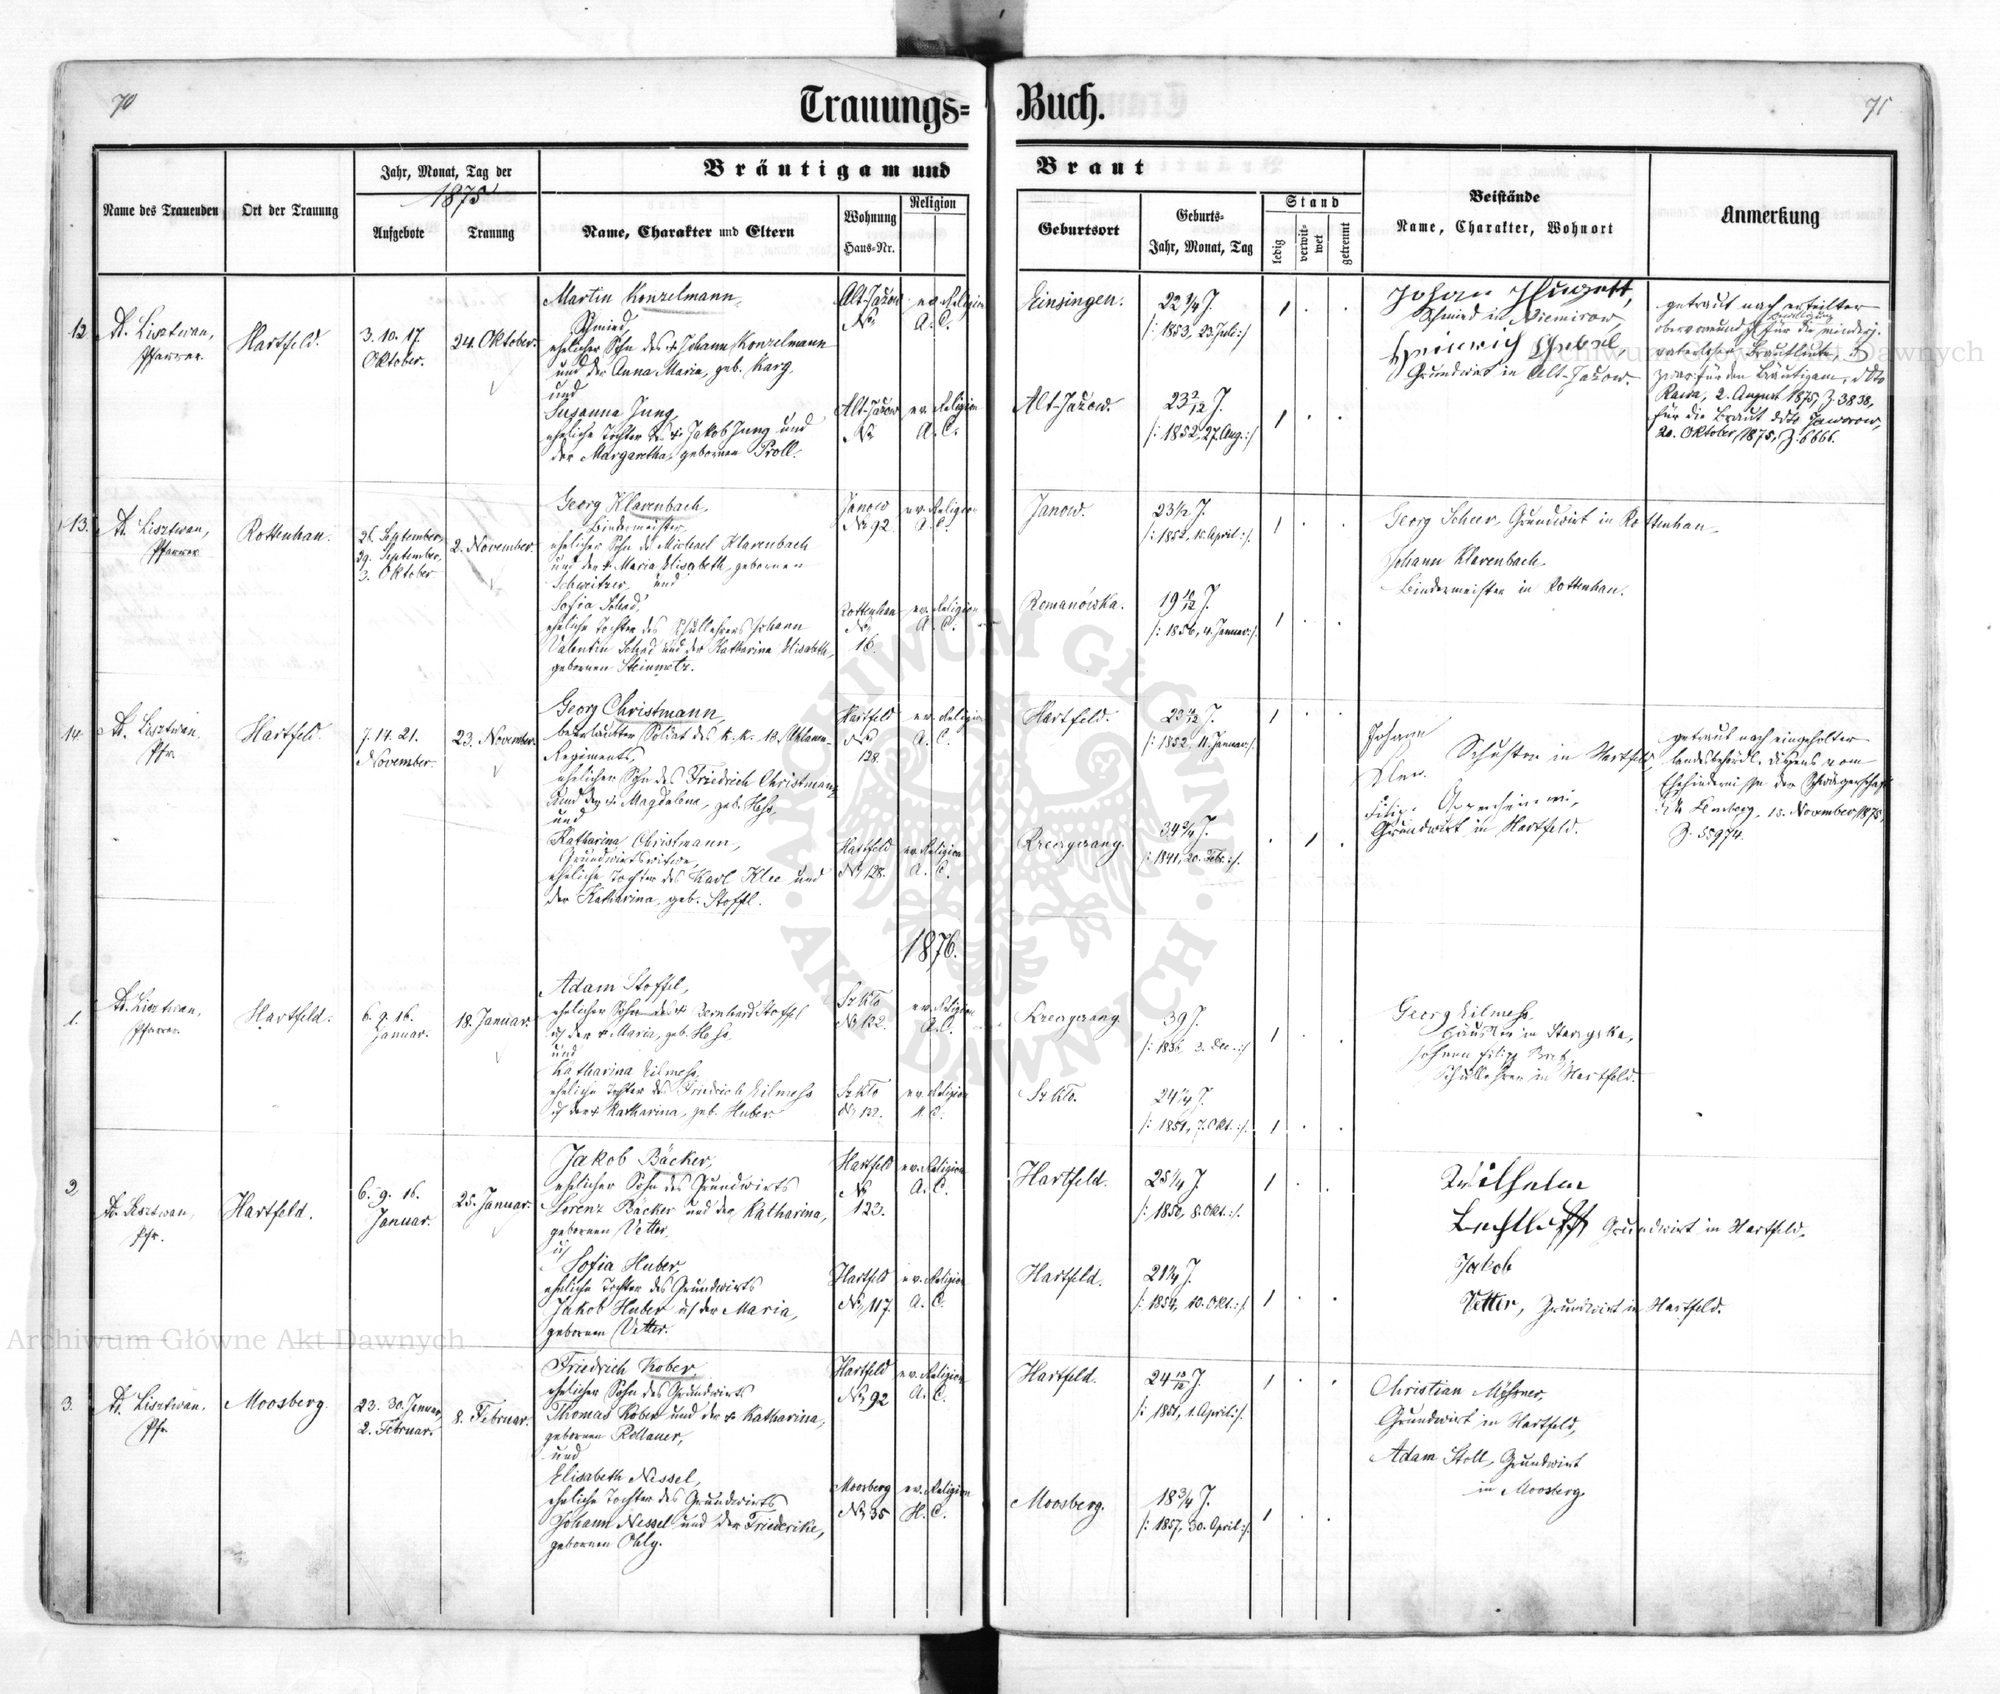 70
Trauungs=
Buch.
71
Name des Trauenden
Ort der Trauung
Jahr, Monat, Tag der
1875
Aufgebote
Trauung
Bräutigam und
Braut
Name, Charakter und Eltern
Wohnung
Haus=Nr.
Religion
Geburtsort
Geburts=
Jahr, Monat, Tag
Stand
ledig
verwit=
wet
getrennt
Beistände
Name, Charakter, Wohnort
Anmerkung
12.
Lisztwan,
Pfarrer.
Hartfeld.
3. 10. 17.
Oktober.
24. Oktober.
Martin Konzelmann,
Schmied,
ehelicher Sohn des + Johann Konzelmann
und der Anna Maria, geb. Karg.
und
Susanna Jung,
eheliche Tochter des + Jakob Jung und
der Margaretha, gebornen Proll.
Alt-Jazow
No
ev. Religion
A. C.
Alt-Jazow
No
ev. Religion
A. C.
Einsingen.
22 1/4 J.
/: 1853, 23. Juli :/
Alt-Jazow.
23 2/12 J.
/: 1852, 27. Aug. :/
Johan
Schmied in Niemirow,
Heinrich
Grundwirt in Alt-Jazow.
getraut nach erteilter
obervormundsch. Bewilligung für die minderj.
vaterlosen Brautleute, u.
zwar für den Bräutigam, ddto
Rawa, 2. August 1875, Z. 3838,
für die Braut ddto Jaworow,
20. Oktober 1875, Z. 6666.
13.
Lisztwan,
Pfarrer
Rottenhan.
26. September,
29. September,
3. Oktober
2. November.
Georg Klarenbach,
Bindermeister,
ehelicher Sohn des Michael Klarenbach
und der + Maria Elisabeth, gebornen
Schweitzer, und
Sofia Schad,
eheliche Tochter des Schullehrers Johann
Valentin Schad und der Katharina Elisabeth,
gebornen Steinmetz.
Janow
No 92
ev. Religion
A. C.
Rottenhan
No
16.
ev. Religion
A. C.
Janow.
23 1/2 J.
/: 1852, 15. April :/
Romanówka.
19 10/12 J.
/: 1856, 4. Januar :/
Georg Scheer, Grundwirt in Rottenhan
Johann Klarenbach
Bindermeister in Rottenhan.
14.
Lisztwan,
Pfr.
Hartfeld.
7. 14. 21.
November.
23. November.
Georg Christmann,
beurlaubter Soldat des k. k. 13. Uhlanen-
Regiments,
ehelicher Sohn des Friedrich Christmann
und der + Magdalena, geb. Hess,
und
Katharina Christmann,
Grundwirtswitwe,
eheliche Tochter des Karl Klee und
der Katharina, geb. Stoffl.
Hartfeld
No
128.
ev. Religion
A. C.
Hartfeld
No 128.
ev. Religion
A. C.
Hartfeld.
23 10/12 J.
/: 1852, 11. Januar :/
34 3/4 J.
/: 1841, 20. Febr. :/
Johann
Schuster in Hartfeld,
Filip
Grundwirt in Hartfeld.
getraut nach eingeholter
landesbehördl. Dispens vom
Ehehindernisse der Schwägerschaft
ddto Lemberg, 13. November 1875,
Z. 55974.
1876.
1.
Lisztwan,
Pfarrer
Hartfeld.
6. 9. 16.
Januar.
18. Januar.
Adam Stoffel,
ehelicher Sohn des + Bernhard Stoffel
u der + Maria, geb. Hess.
und
Katharina Eilmess,
eheliche Tochter des Friedrich Eilmess
u der + Katharina, geb. Huber
Szkło
No 132.
ev. Religion
A. C.
Szkło
No 132.
ev. Religion
A. C.
39 J.
/: 1836, 3. Dec. :/
Szkło.
24 1/4 J.
/: 1851, 7. Okt. :/
Georg Eilmess,
Johann Filipp
Schullehrer in Hartfeld.
2
Lisztwan,
Pfr.
Hartfeld.
6. 9. 16.
Januar.
25. Januar.
Jakob Bäcker,
ehelicher Sohn des Grundwirts
Lorenz Bäcker und der Katharina,
gebornen Vetter,
u
Sofia Huber,
eheliche Tochter des Grundwirts
Jakob Huber u der Maria,
gebornen Vetter.
Hartfeld
No
123.
ev. Religion
A. C.
Hartfeld
No 117.
ev. Religion
A. C.
Hartfeld.
25 1/4 J.
/: 1850, 8. Okt. :/
Hartfeld.
21 1/4 J.
/: 1854, 10. Okt. :/
Wilhelm
Grundwirt in Hartfeld.
Jakob
Vetter, Grundwirt in Hartfeld.
3.
Lisztwan,
Pfr
Moosberg
23. 30. Januar,
2. Februar.
8. Februar.
Friedrich Kober
ehelicher Sohn des Grundwirts
Thomas Kober und der + Katharina,
gebornen Rollauer,
und
Elisabeth Nessel,
eheliche Tochter des Grundwirts
Johann Nessel und der Friederike,
gebornen Ohly.
Hartfeld
No 92
ev. Religion
A. C.
Moosberg
No 35
ev. Religion
H. C.
Hartfeld.
24 10/12 J.
/: 1851, 1. April :/
Moosberg.
18 3/4 J.
/: 1857, 30. April :/
Christian
Grundwirt in Hartfeld,
Adam Stoll, Grundwirt
in Moosberg.
ARCHIWUM GŁÓWNE AKT DAWNYCH
Archiwum Główne Akt Dawnych
Archiwum Główne Akt Dawnych